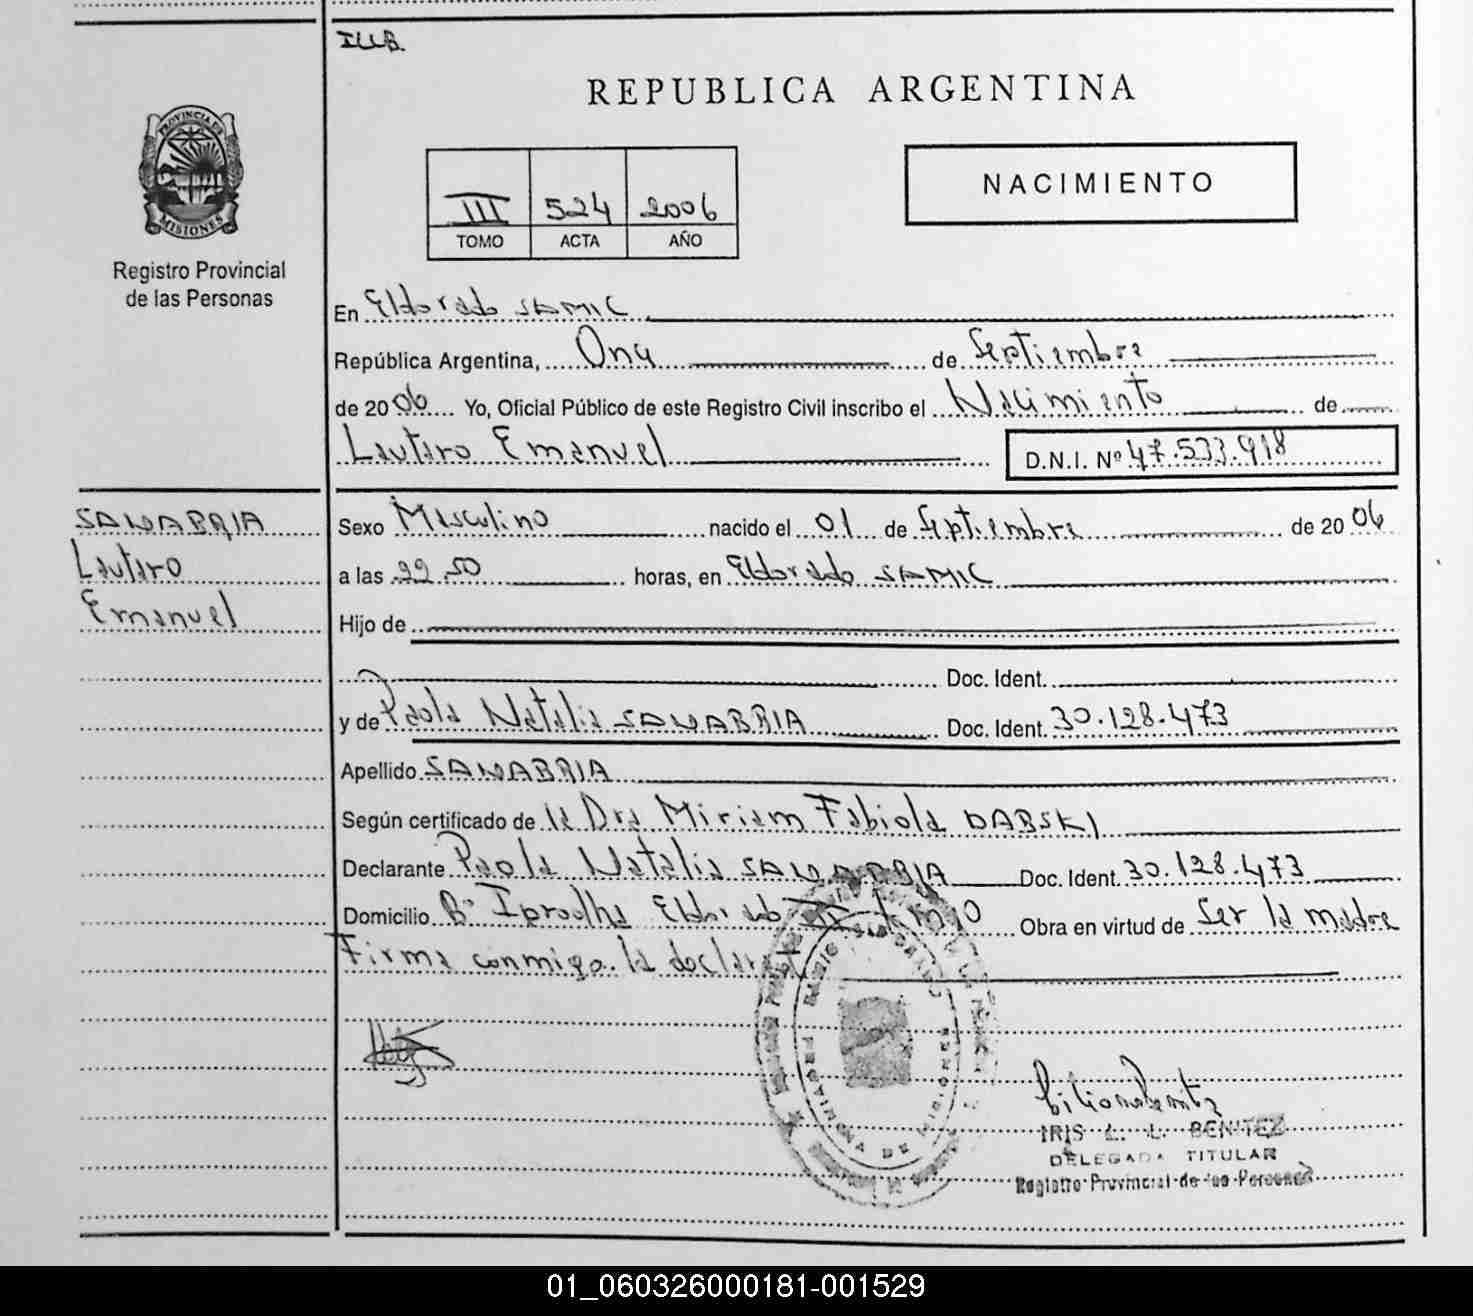 ILLB.
REPUBLICA ARGENTINA
PROVINCIA DE
MISIONES
Registro Provincial
de las Personas
III 524 2006
TOMO ACTA AÑO
NACIMIENTO
En Eldorado SAMIC
República Argentina, Once de Septiembre
de 2006 Yo, Oficial Público de este Registro Civil inscribo el Nacimiento de
Lautaro Emanuel D.N.I. Nº 47.533.918
SANABRIA
Lautaro
Emanuel
Sexo Masculino nacido el 01 de Septiembre de 2006
a las 22.50 horas, en Eldorado SAMIC
Hijo de
Doc. Ident.
y de Paola Natalia SANABRIA Doc. Ident. 30.128.473
Apellido SANABRIA
Según certificado de la Dra Miriam Fabiola DABSKI
Declarante Paola Natalia SANABRIA Doc. Ident. 30.128.473
Domicilio Bº Eldorado Obra en virtud de Ser la madre
Firma conmigo la declarante
IRIS L. L. BENITEZ
DELEGADA TITULAR
Registro Provincial de las Personas
01_060326000181-001529